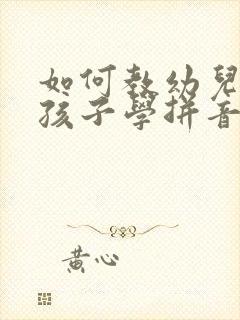 如何教幼兒
孩子學拼音
黃心